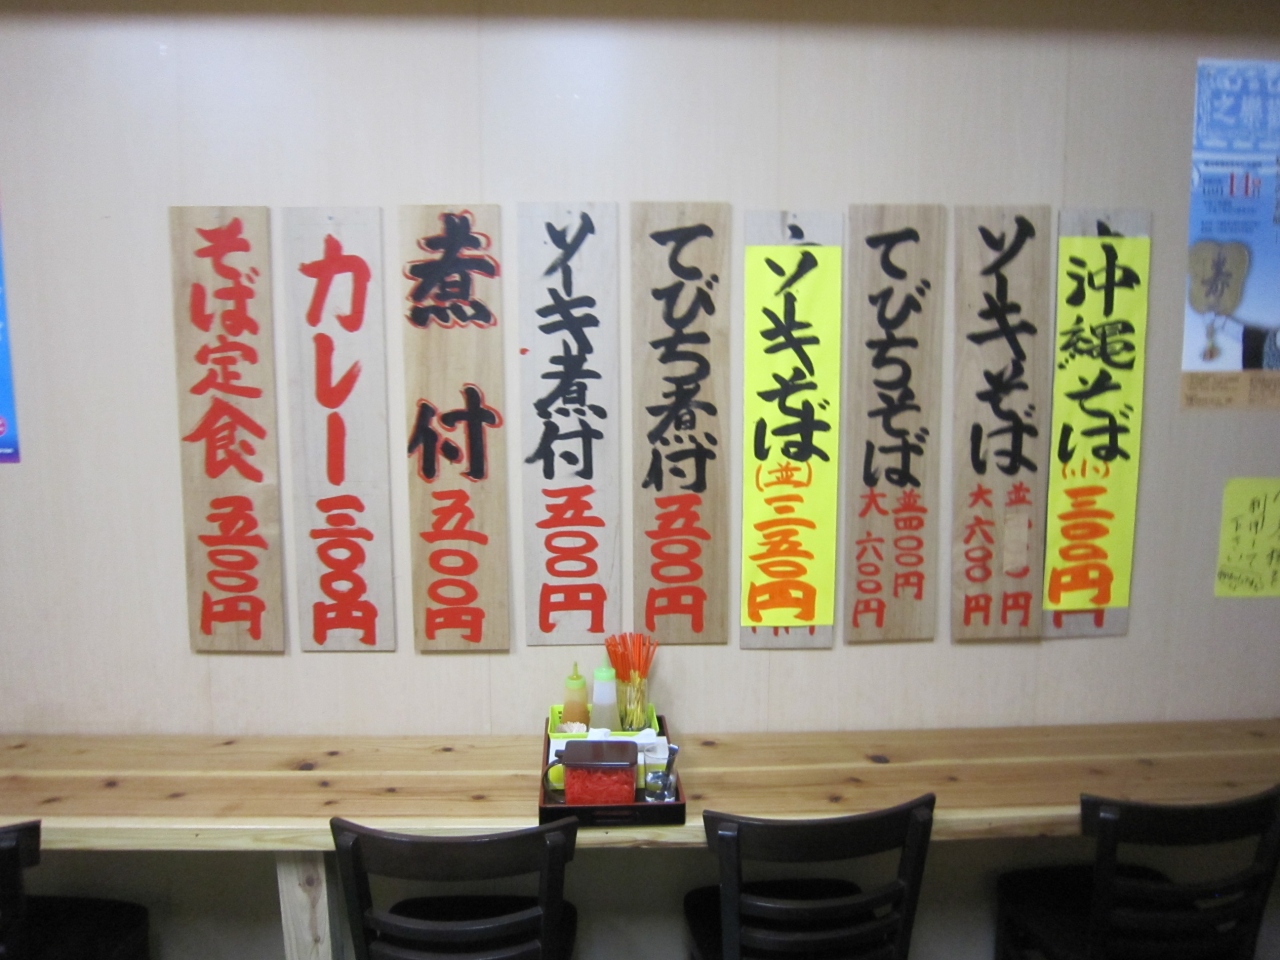 沖縄そば(小)三〇〇円
ソーキそば
並 円
大 六〇〇円
てびちそば
並四〇〇円
大 六〇〇円
ソーキそば(並)三五〇円
てびち煮付五〇〇円
ソーキ煮付五〇〇円
煮付五〇〇円
カレー三〇〇円
そば定食五〇〇円